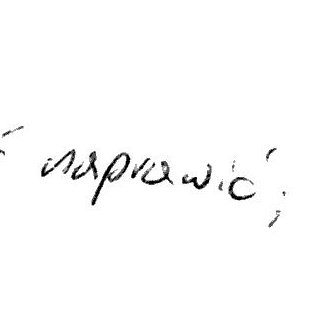 naprawić;